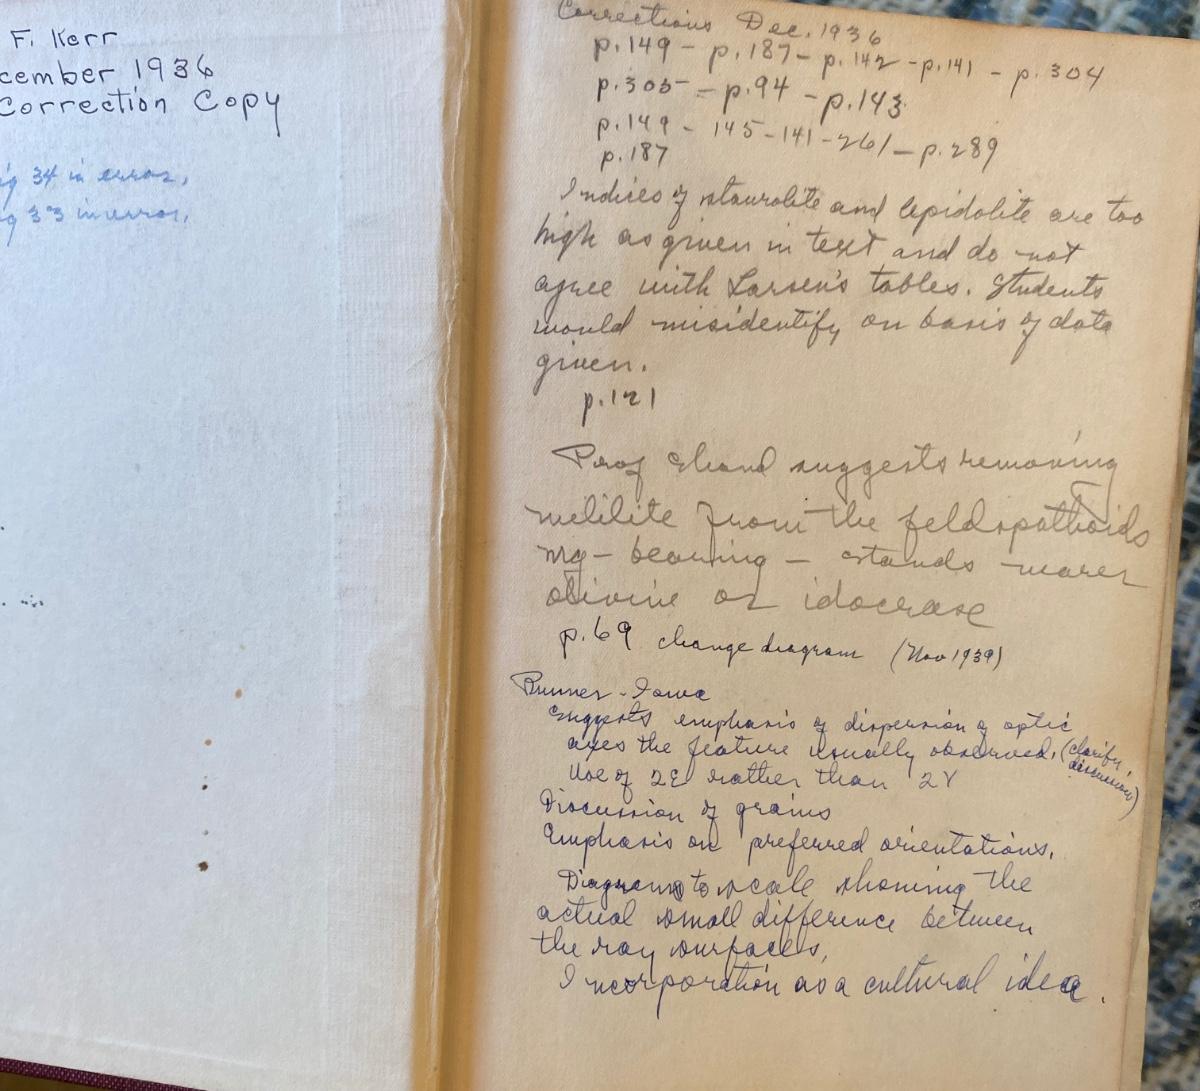 F. Kerr
cember 1936
Correction Copy
g 34 in error,
g 33 in error,
Corrections Dec. 1936
p.149 - p.187 - p.142 - p.141 - p.304
p.305 - p.94 - p.143
p.149 - 145-141-261 - p.289
p.187
Indices of staurolite and lepidolite are too
high as given in text and do not
agree with Larsen's tables. Students
would misidentify on basis of data
given.
p.121
Prof Shand suggests removing
melilite from the feldspathoids
Mg - bearing - stands nearer
olivine or idocrase
p.69 change diagram (Nov 1939)
Runner - Iowa
Suggests emphasis of dispersion of optic
axes the feature usually observed. (clarify
discussion)
Use of 2E rather than 2V
Discussion of grains
Emphasis on preferred orientations.
Diagrams to scale showing the
actual small difference between
the ray surfaces,
Incorporation as a cultural idea.